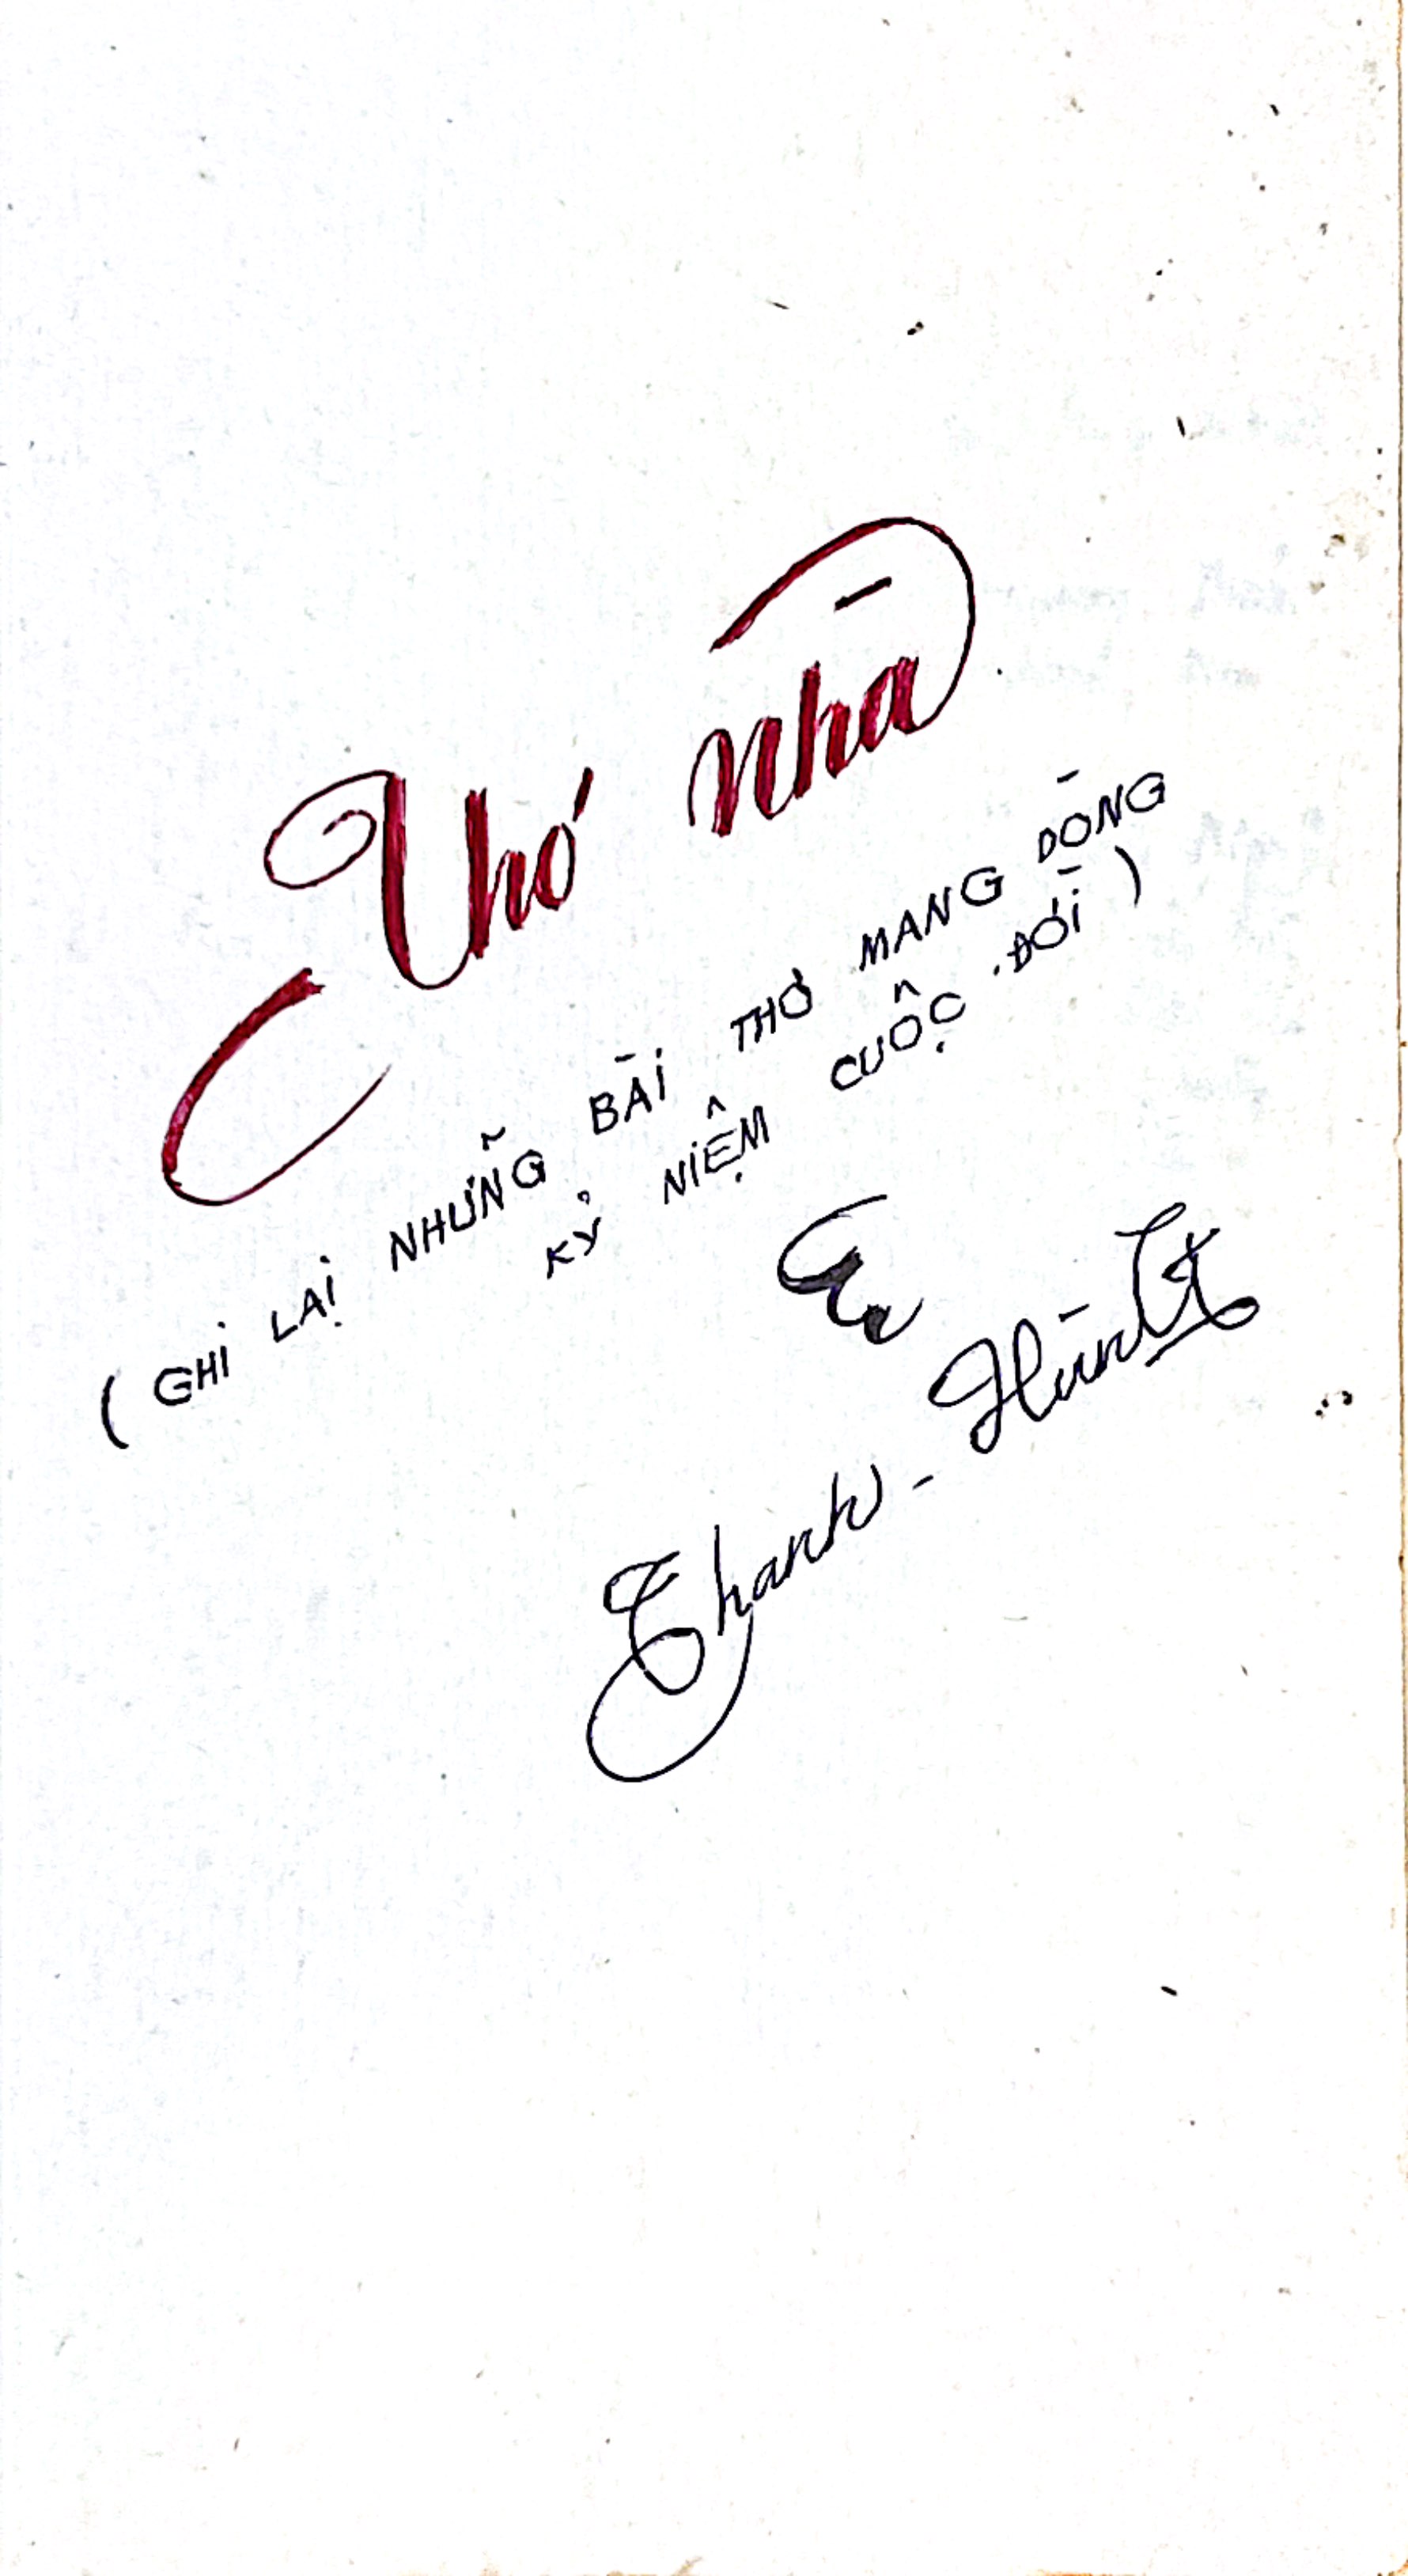 Thơ nhà
(GHI LẠI NHỮNG BÀI THƠ MANG DÒNG
KỶ NIỆM CUỘC ĐỜI)
Thanh - Hùng